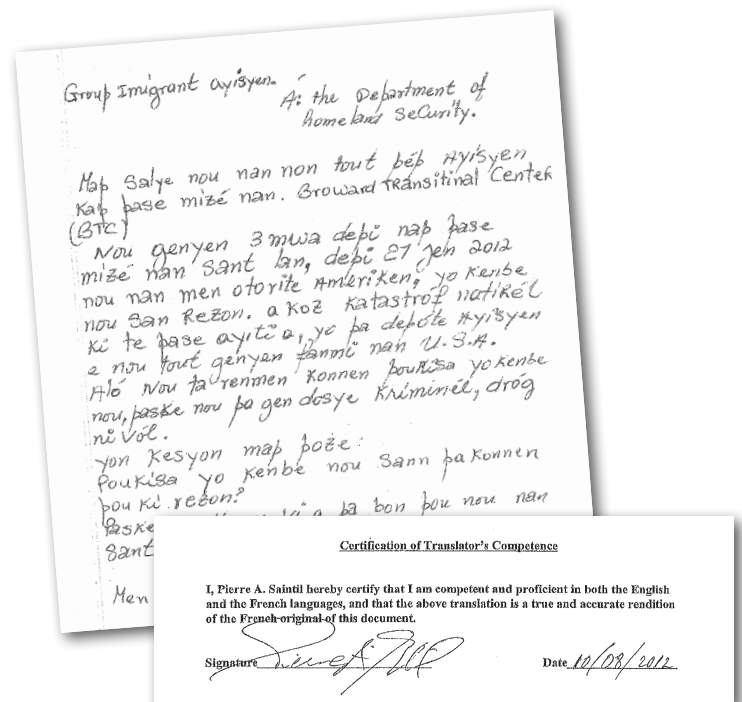 Group Imigrant ayisyen.
A: the Department of
homeland Security.
Map Salye nou nan non tout pèp Ayisyen
kap pase mizé nan. Broward TRansitinal Center
(BTC)
Nou genyen 3 mwa depi nap pase
mizé nan Sant lan, depi 27 Jen 2012
nou nan men otorite Ameriken, yo kenbe
nou San Rezon. a koz katastròf natirèl
ki te pase ayiti a, yo pa depòte Ayisyen
e nou tout genyen fanmi nan U.S.A.
Alò Nou ta renmen konnen poukisa yo kenbe
nou, paske nou pa gen dosye kriminèl, dròg
ni vòl.
yon kesyon map poze:
Poukisa yo kenbe nou Sann pa konnen
pou ki rezon?
Paske pa bon pou nou nan
Sant
Men
Certification of Translator's Competence
I, Pierre A. Saintil hereby certify that I am competent and proficient in both the English
and the French languages, and that the above translation is a true and accurate rendition
of the French original of this document.
Signature
Date 10/08/2012